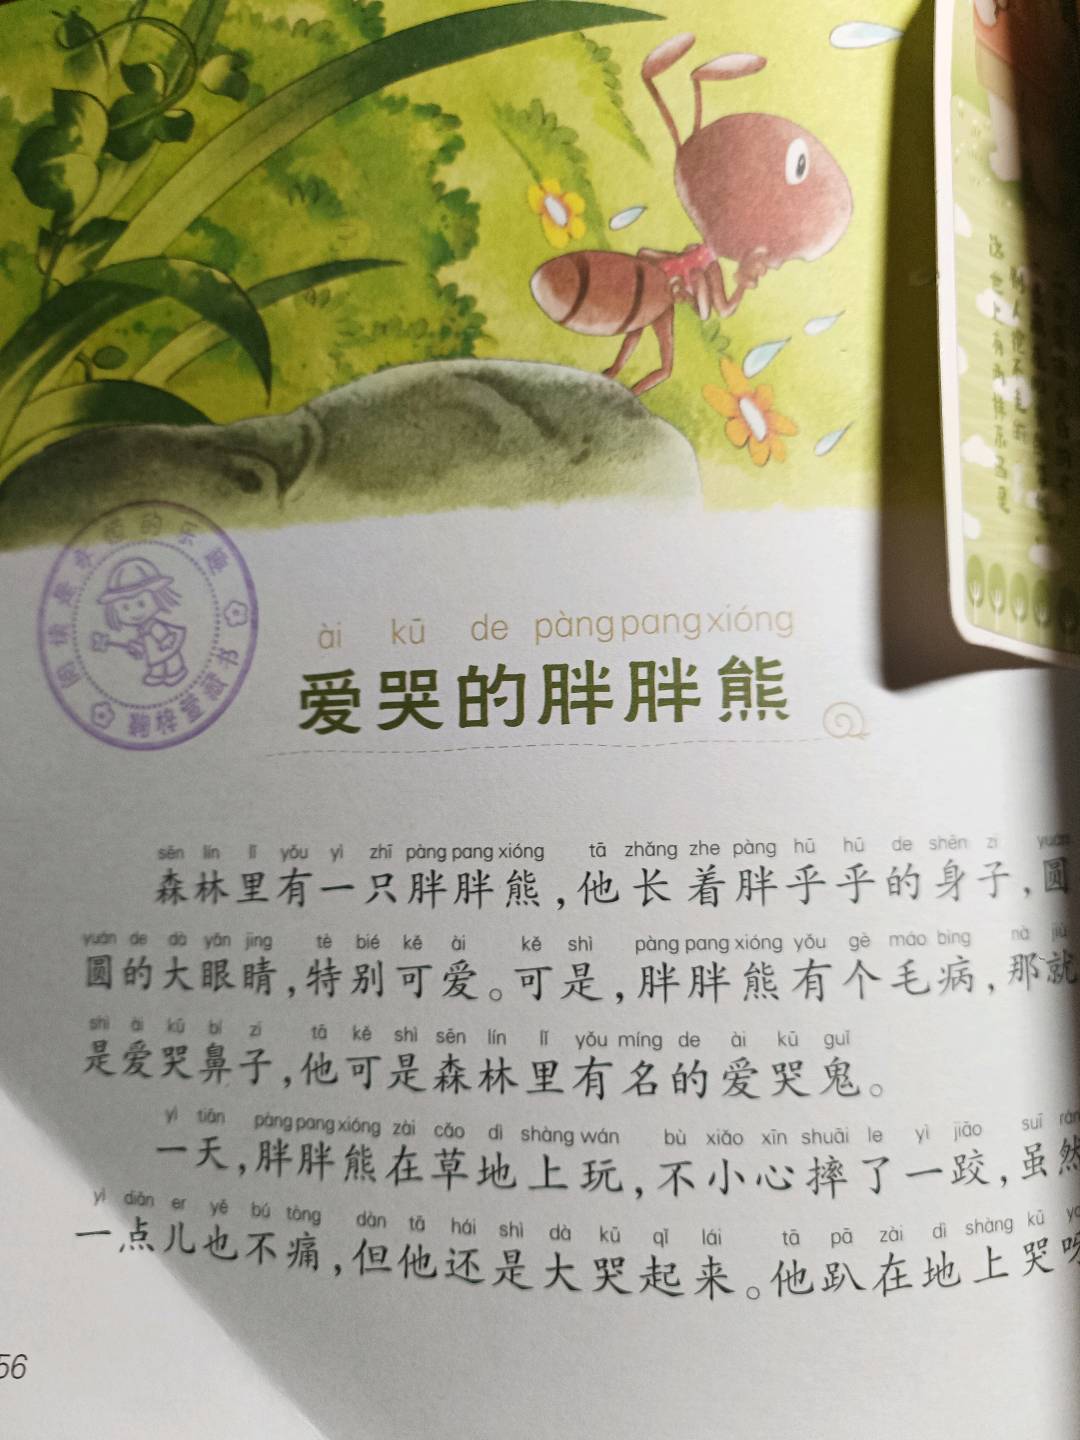 阅读是永恒的乐趣
鞠梓萱藏书
ài kū de pàngpangxióng
爱哭的胖胖熊
sēn lín lǐ yǒu yì zhī pàng pang xióng tā zhǎng zhe pàng hū hū de shēn zi yuán
森林里有一只胖胖熊，他长着胖乎乎的身子，圆
yuán de dà yǎn jing tè bié kě ài kě shì pàng pang xióng yǒu gè máo bìng nà jiù
圆的大眼睛，特别可爱。可是，胖胖熊有个毛病，那就
shì ài kū bí zi tā kě shì sēn lín lǐ yǒu míng de ài kū guǐ
是爱哭鼻子，他可是森林里有名的爱哭鬼。
yì tiān pàng pang xióng zài cǎo dì shàng wán bù xiǎo xīn shuāi le yì jiāo suī rán
一天，胖胖熊在草地上玩，不小心摔了一跤，虽然
yì diǎn er yě bú tòng dàn tā hái shì dà kū qǐ lái tā pā zài dì shàng kū ya
一点儿也不痛，但他还是大哭起来。他趴在地上哭呀
56